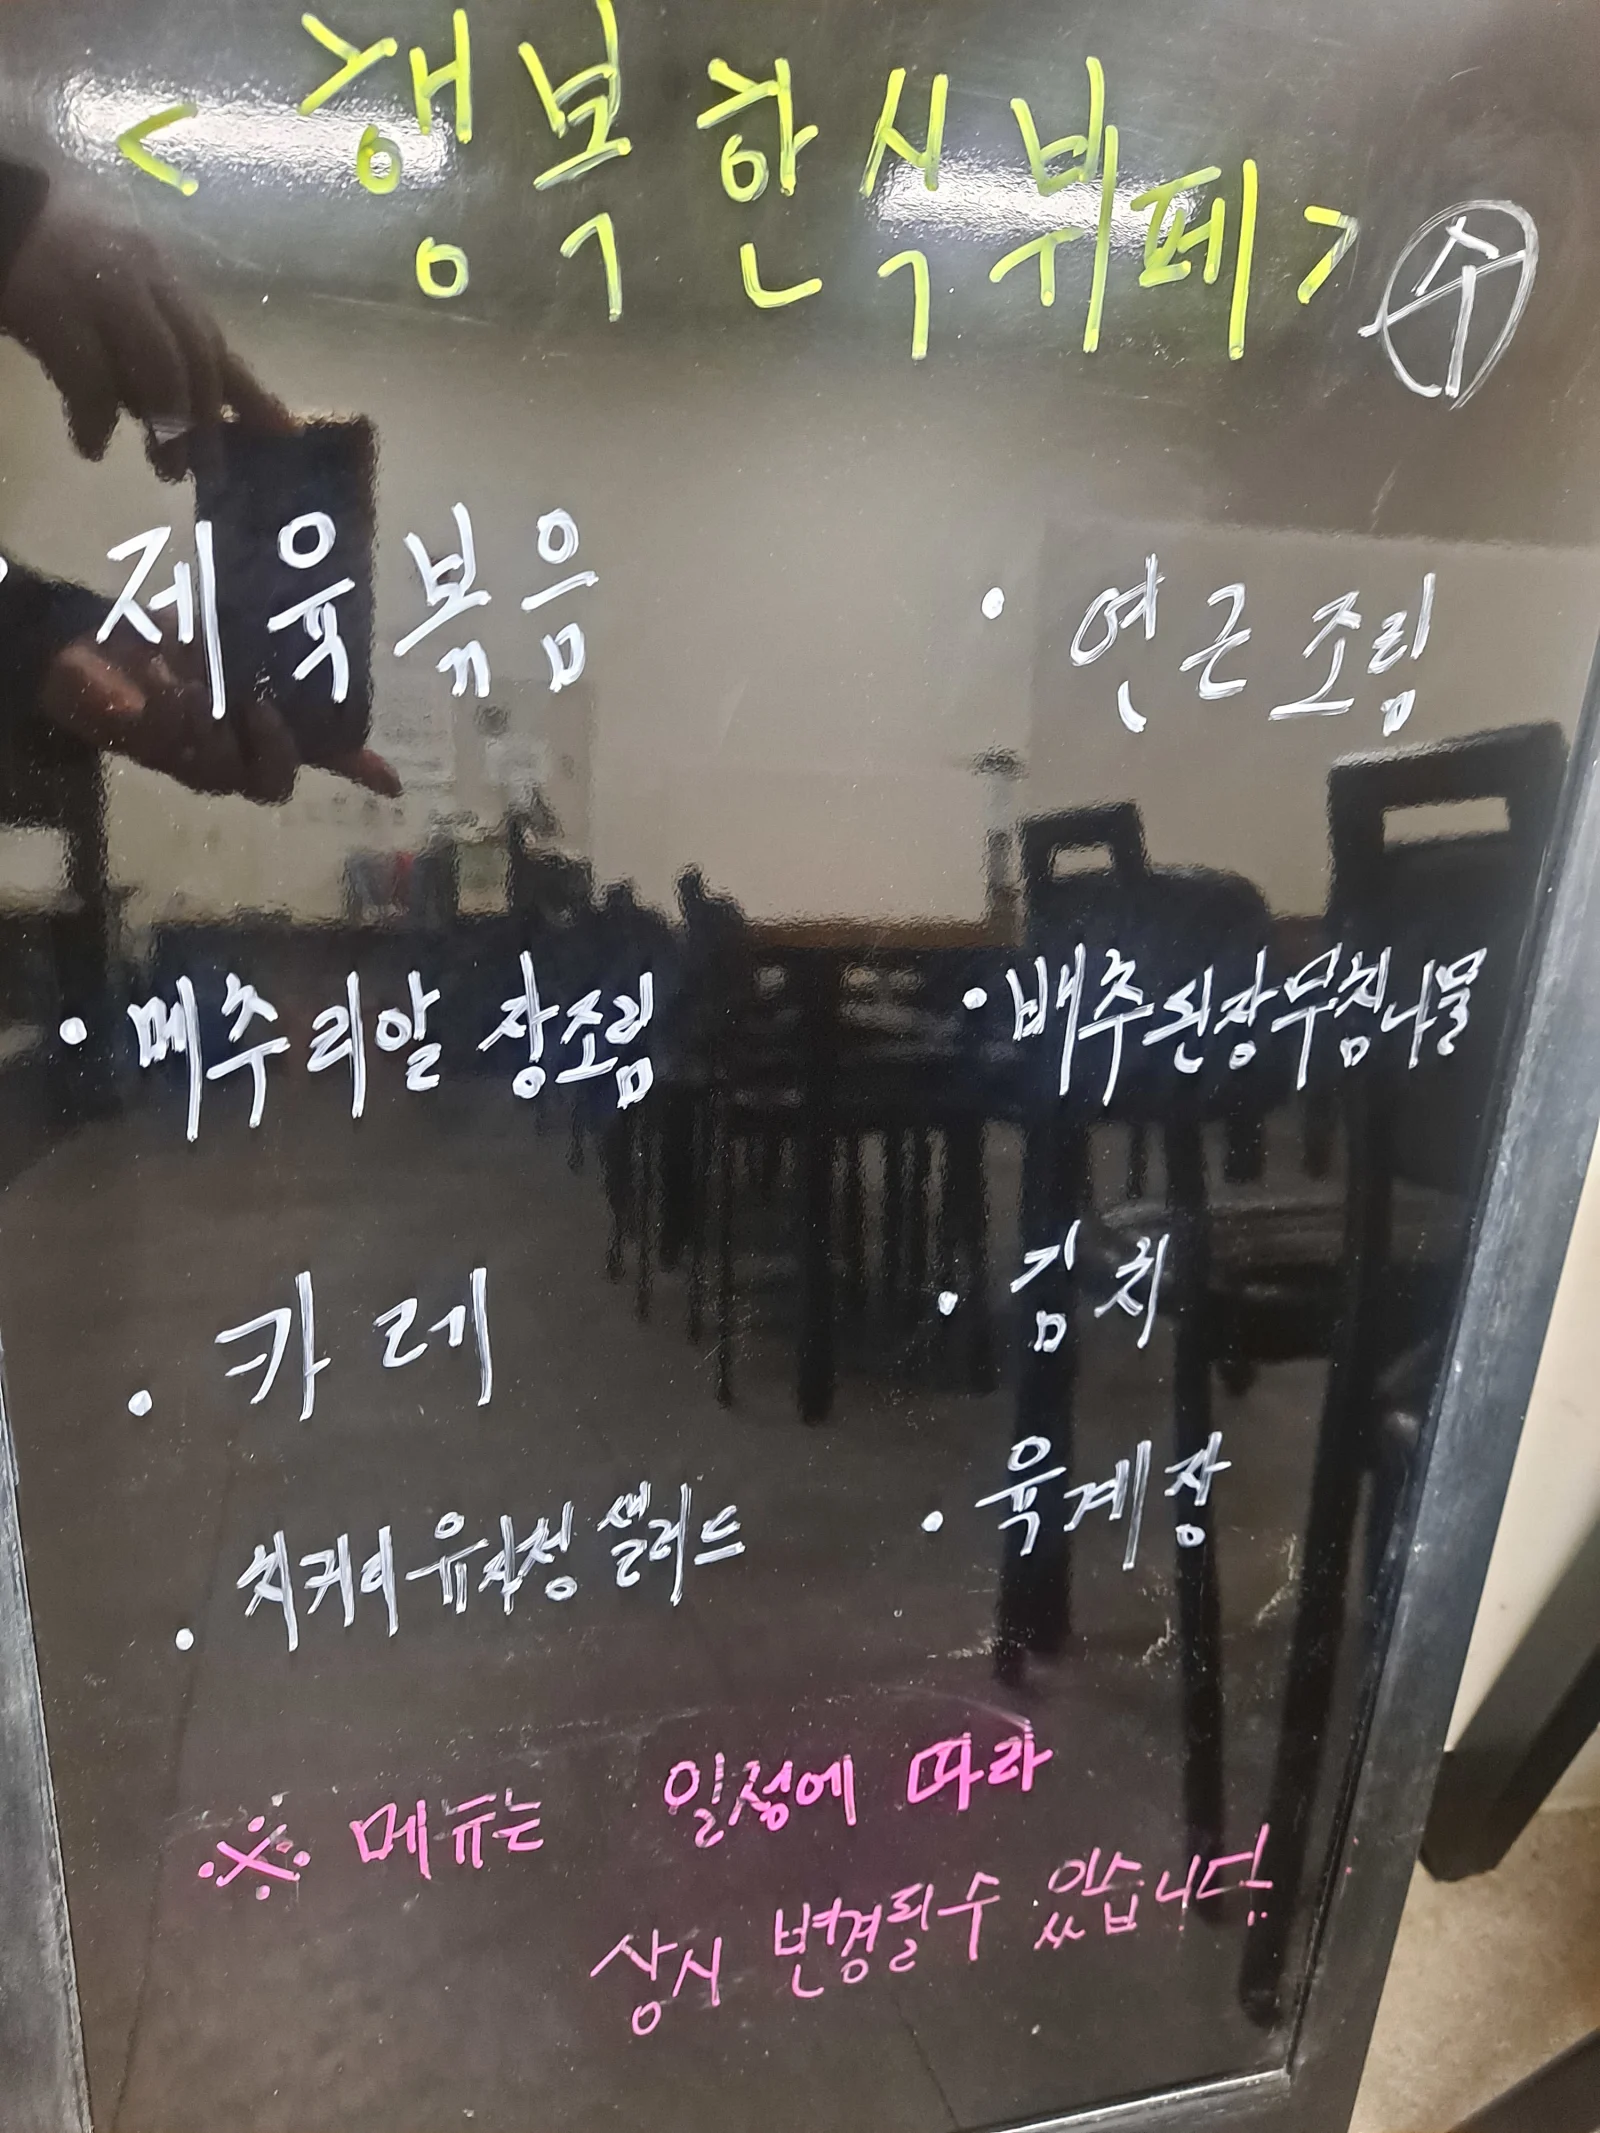 <행복한식뷔페> 수
· 제육볶음
· 연근조림
· 메추리알 장조림
· 배추된장무침나물
· 카레
· 김치
· 치커리유자청 샐러드
· 육계장
※ 메뉴는 일정에 따라
상시 변경될수 있습니다.